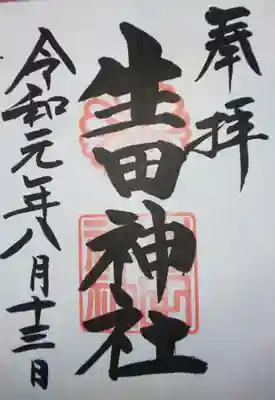 奉拝
生田神社
令和元年八月十三日